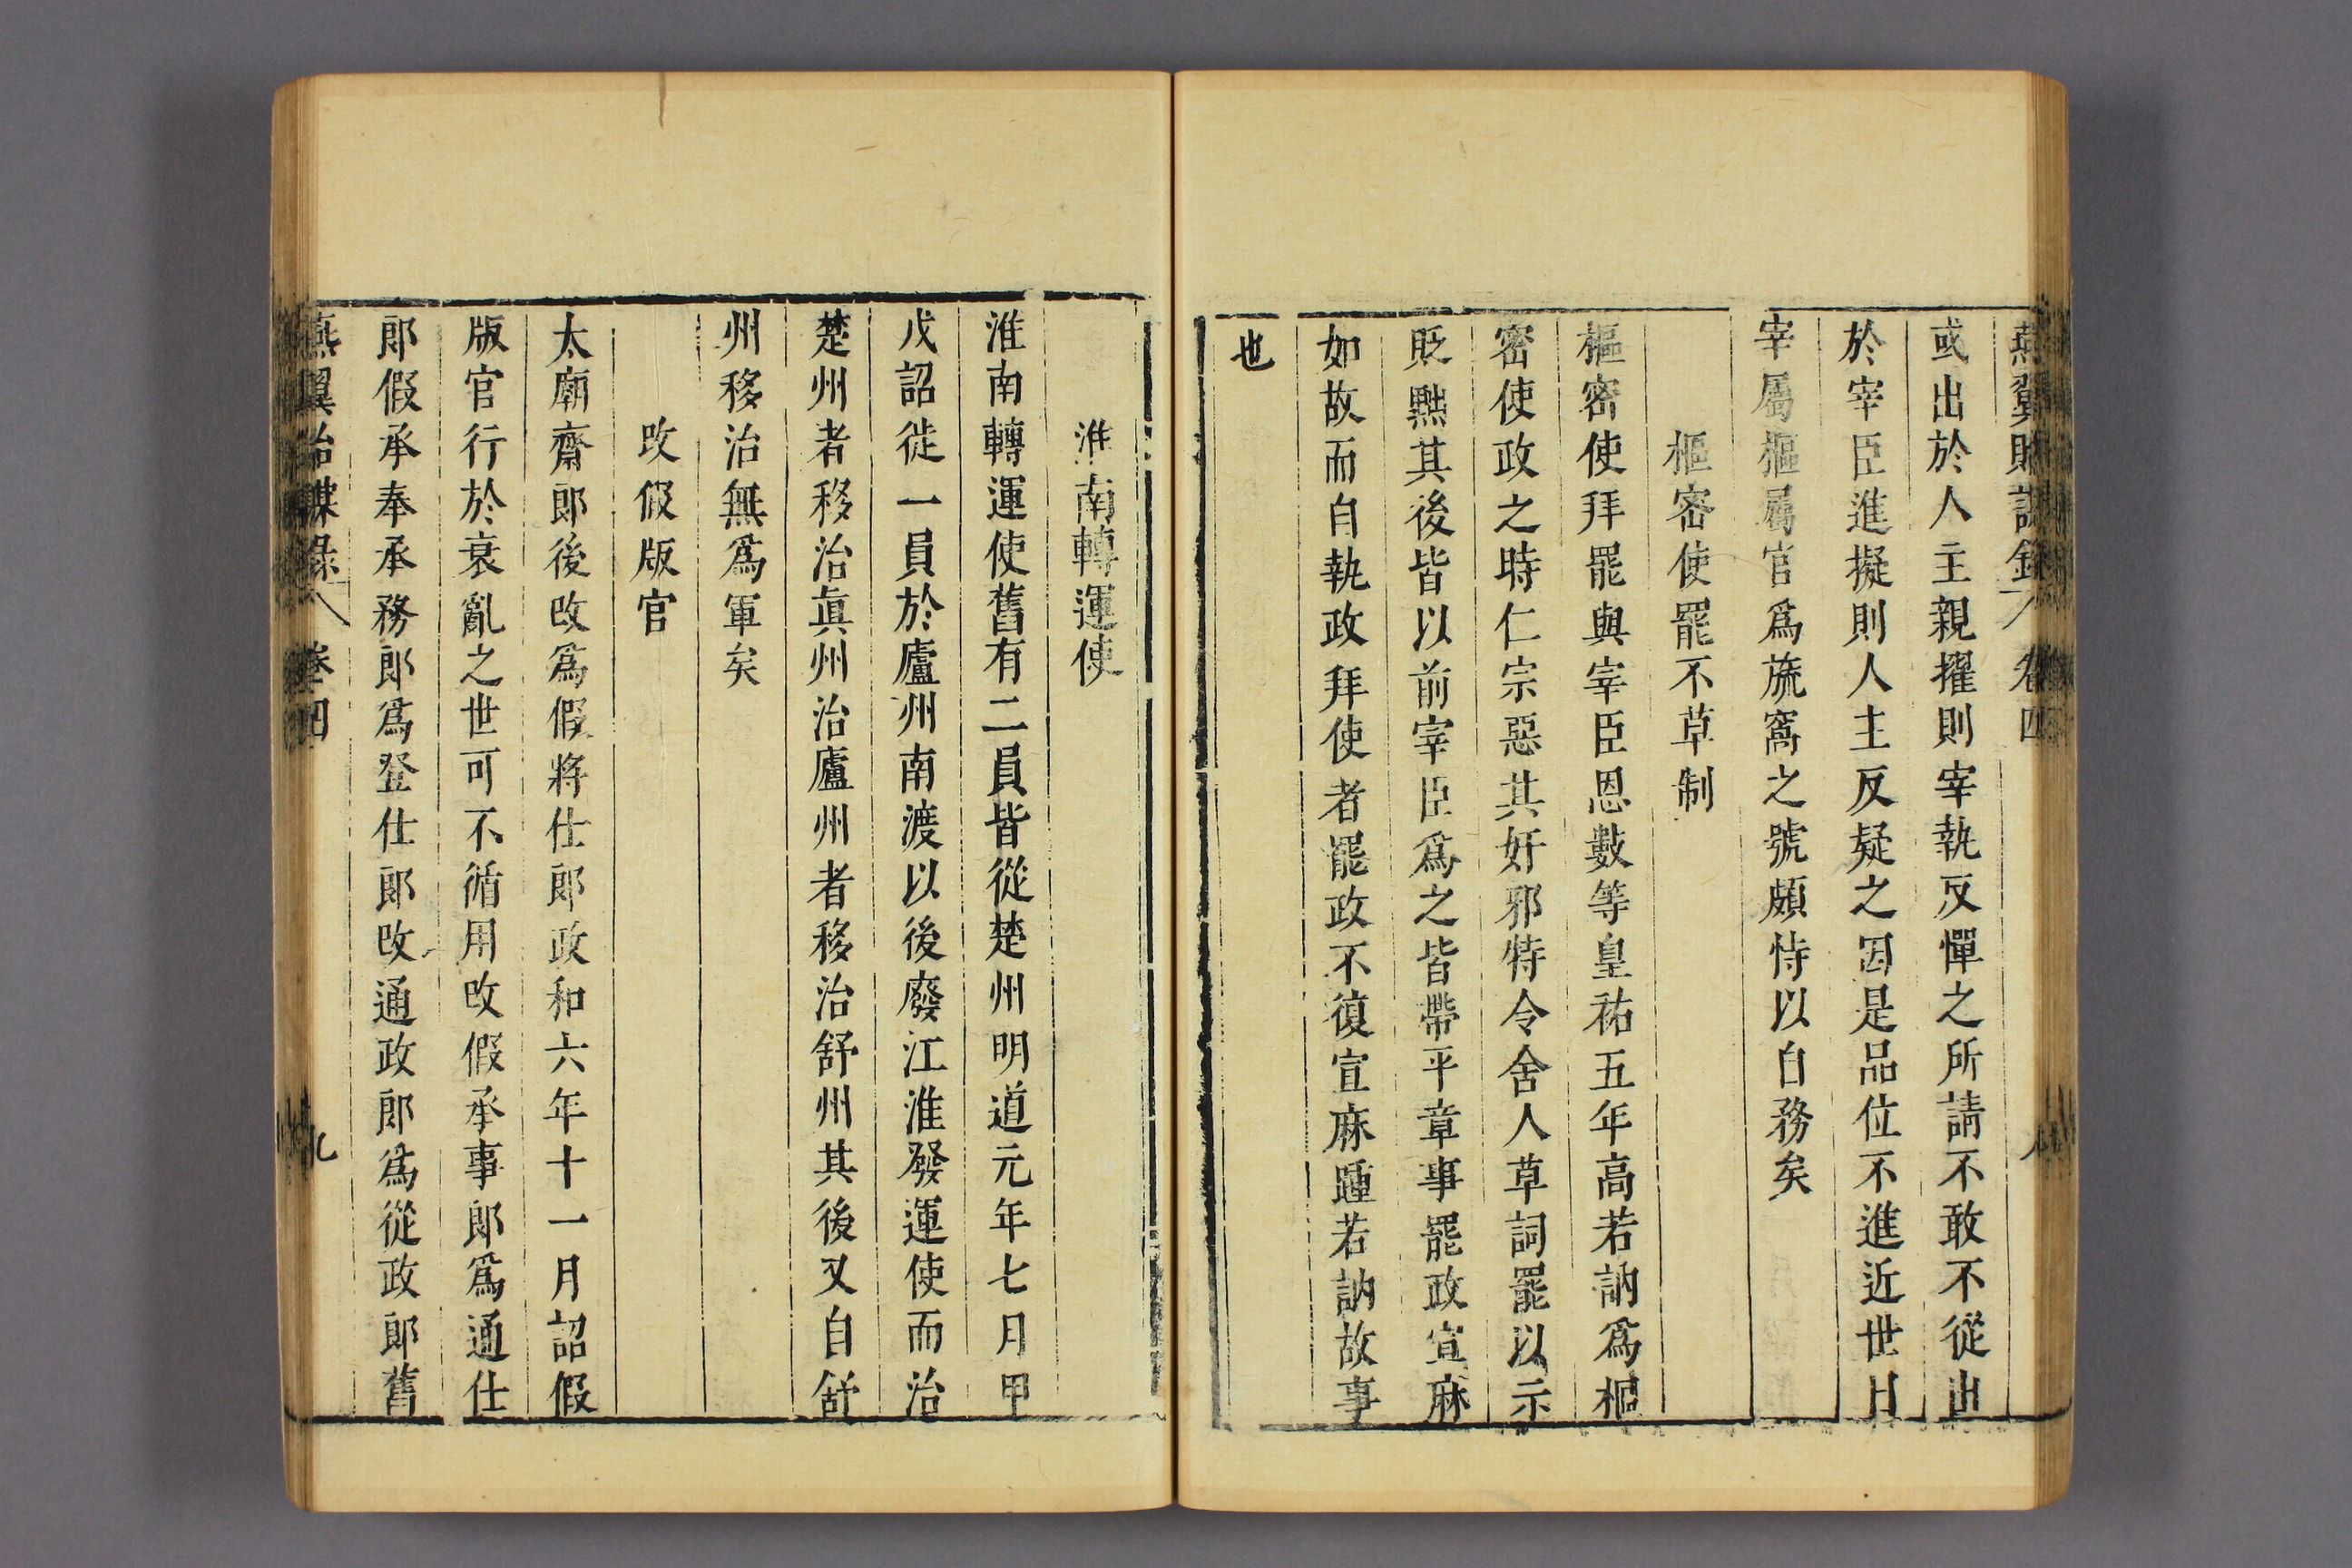 燕翼貽謀錄 卷四 八
或出於人主親擢則宰執反憚之所請不敢不從出
於宰臣進擬則人主反疑之因是品位不進近世日
宰屬樞屬官爲旒窩之號頗恃以自務矣
樞密使罷不草制
樞密使拜罷與宰臣恩數等皇祐五年高若訥爲樞
密使政之時仁宗惡其奸邪特令舍人草詞罷以示
貶黜其後皆以前宰臣爲之皆帶平章事罷政宣麻
如故而自執政拜使者罷政不復宣麻踵若訥故事
也
淮南轉運使
淮南轉運使舊有二員皆從楚州明道元年七月甲
戌詔徙一員於廬州南渡以後廢江淮發運使而治
楚州者移治眞州治廬州者移治舒州其後又自舒
州移治無爲軍矣
改假版官
太廟齋郎後改爲假將仕郎政和六年十一月詔假
版官行於衰亂之世可不循用改假承事郎爲通仕
郎假承奉承務郎爲登仕郎改通政郎爲從政郎舊
燕翼詒謀錄 卷四 九